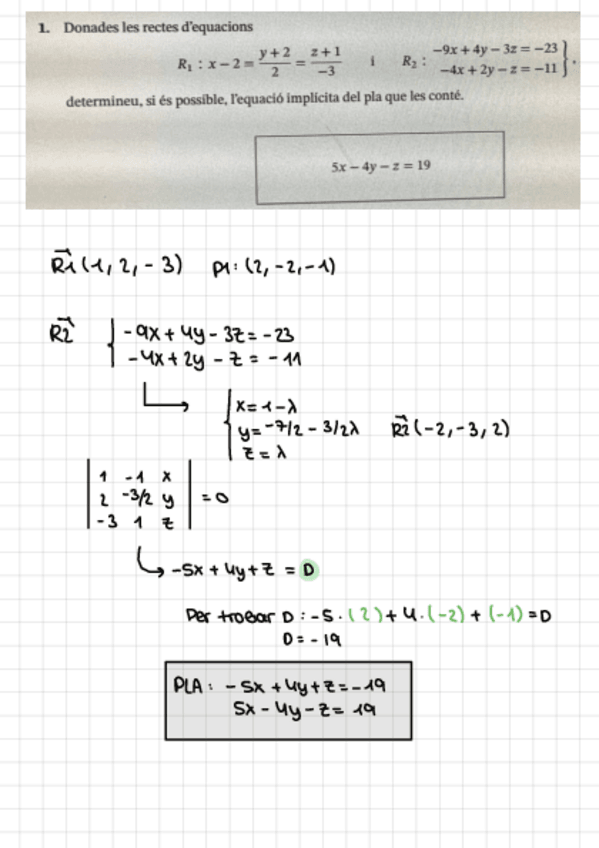 1. Donades les rectes d'equacions
R₁ : x − 2 = (y + 2)/2 = (z + 1)/−3 i R₂ : −9x + 4y − 3z = −23
−4x + 2y − z = −11 } .
determineu, si és possible, l'equació implícita del pla que les conté.
5x − 4y − z = 19
R1 (1, 2, -3) P1: (2, -2, -1)
R2 { -9x + 4y - 3z = -23
-4x + 2y - z = -11
x = 1 - λ
y = -7/2 - 3/2λ R2 (-2, -3, 2)
z = λ
| 1 -1 x |
| 2 -3/2 y | = 0
| -3 1 z |
-5x + 4y + z = D
Per trobar D : -5 · (2) + 4 · (-2) + (-1) = D
D = -19
PLA : -5x + 4y + z = -19
5x - 4y - z = 19